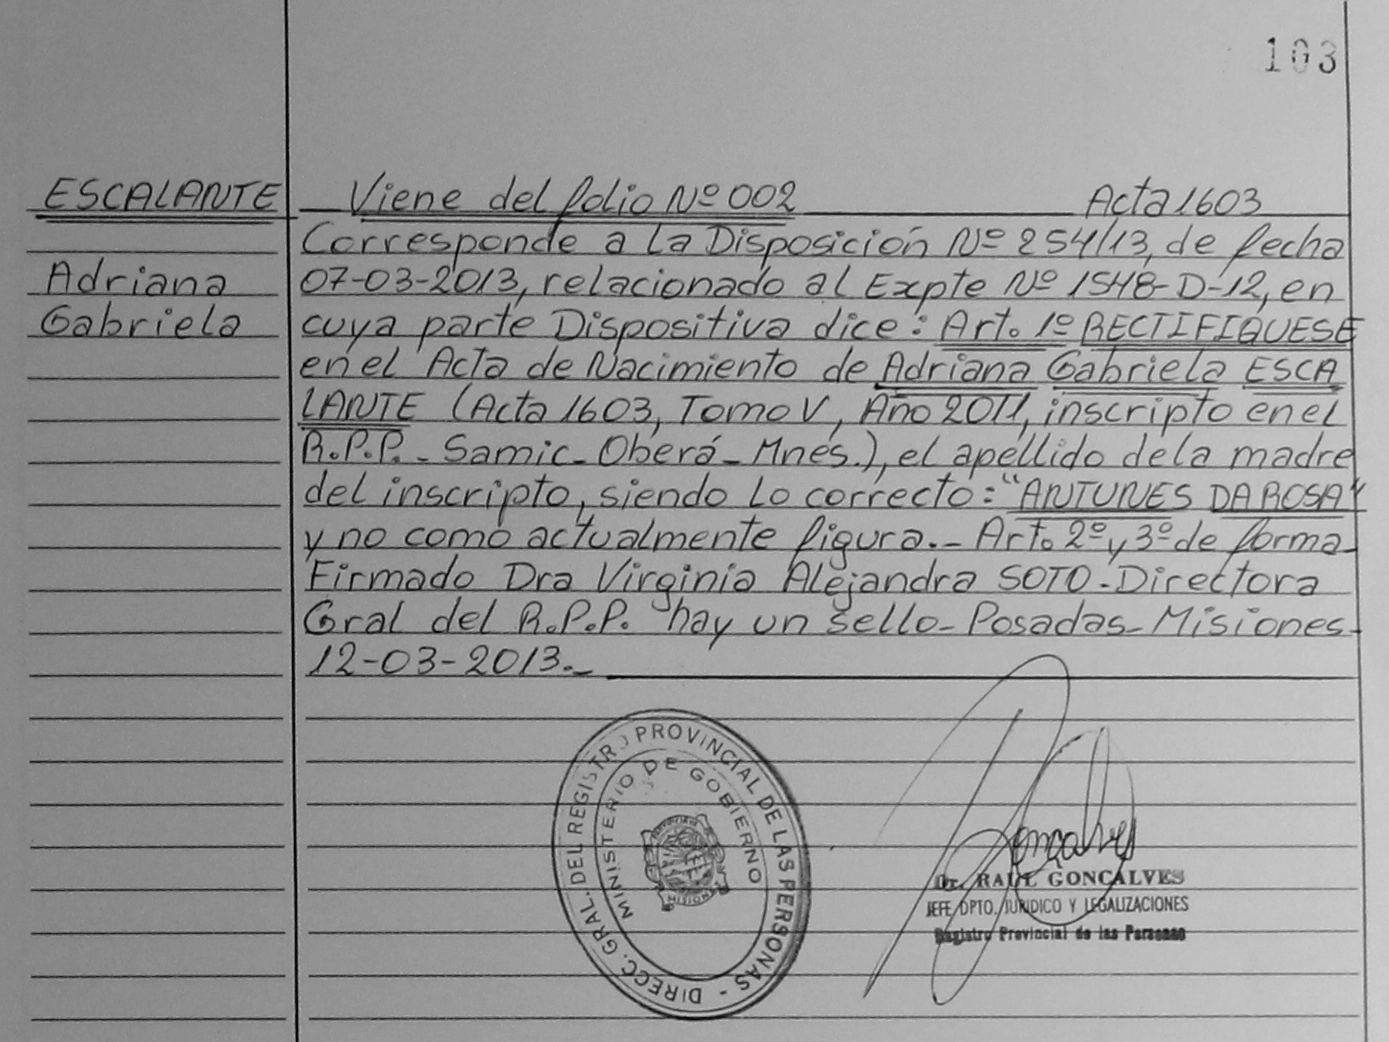 103
ESCALANTE
Adriana
Gabriela
Viene del folio Nº 002 Acta 1603
Corresponde a la Disposición Nº 254/13, de fecha
07-03-2013, relacionado al Expte Nº 1548-D-12, en
cuya parte Dispositiva dice: Art. 1º RECTIFIQUESE
en el Acta de Nacimiento de Adriana Gabriela ESCA
LANTE (Acta 1603, Tomo V, Año 2011, inscripto en el
R.P.P. - Samic - Oberá - Mnes.), el apellido de la madre
del inscripto, siendo lo correcto: "ANTUNES DA ROSA"
y no como actualmente figura.- Art. 2º y 3º de forma-
Firmado Dra Virginia Alejandra SOTO - Directora
Gral del R.P.P. hay un sello - Posadas - Misiones-
12-03-2013.-
DIRECC. GRAL. DEL REGISTRO PROVINCIAL DE LAS PERSONAS -
MINISTERIO DE GOBIERNO
MISIONES
Gonçalves
Dr. RAUL GONCALVES
JEFE DPTO. JURIDICO Y LEGALIZACIONES
Registro Provincial de las Personas